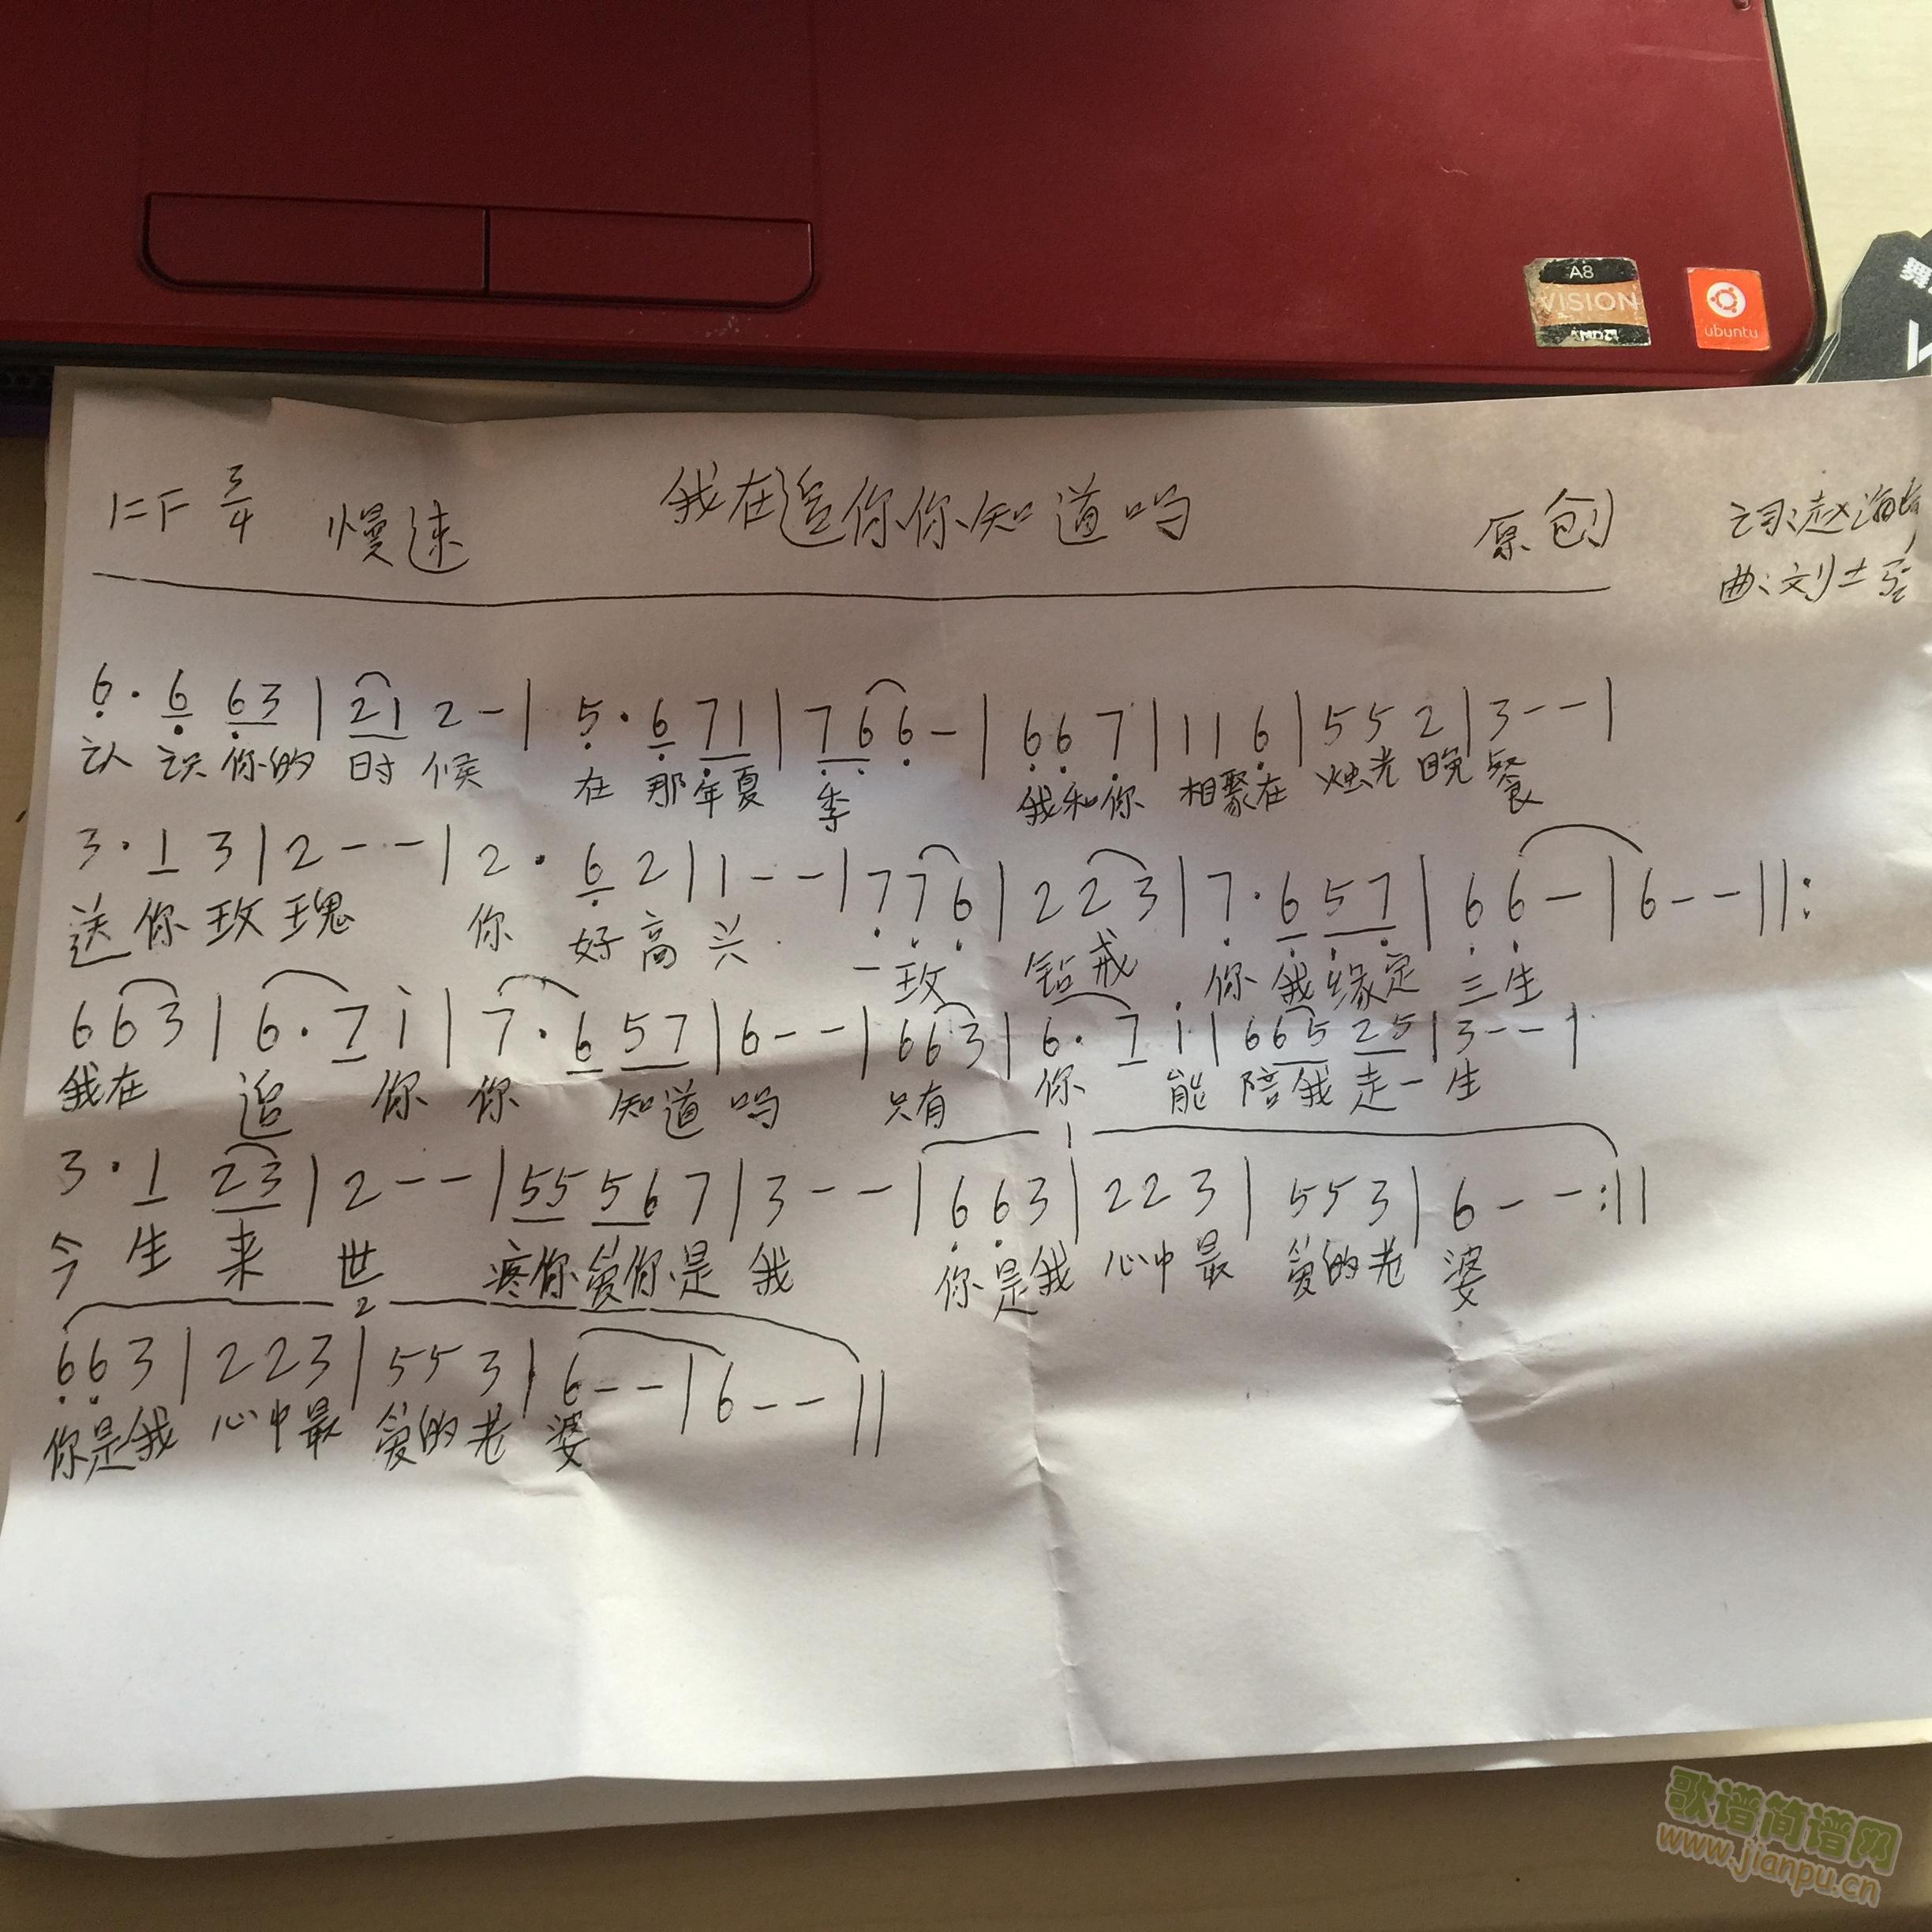 A8
VISION
AMD
ubuntu
1=F 3/4 慢速 我在追你你知道吗 原创 词:赵海
曲:刘士
6· 6 63 | 21 2 - | 5· 6 71 | 7 6 6 - | 6 6 7 | 1 1 6 | 5 5 2 | 3 - - |
认 识 你的 时 候 在 那 年夏 季 我和你 相聚在 烛光 晚 餐
3· 1 3 | 2 - - | 2· 6 2 | 1 - - | 7 7 6 | 2 2 3 | 7· 6 5 7 | 6 6 - | 6 - - ||:
送 你 玫 瑰 你 好 高 兴 一 玫 钻 戒 你 我 缘定 三 生
6 6 3 | 6· 7 i | 7· 6 5 7 | 6 - - | 6 6 3 | 6· 7 i | 6 6 5 2 5 | 3 - - |
我在 追 你 你 知道 吗 只有 你 能 陪 我 走 一 生
1
3· 1 23 | 2 - - | 55 56 7 | 3 - - | 6 6 3 | 2 2 3 | 5 5 3 | 6 - - :||
今 生 来 世 疼你 爱你 是 我 你是我 心中 最 爱的老 婆
2
6 6 3 | 2 2 3 | 5 5 3 | 6 - - | 6 - - ||
你是我 心中最 爱的老 婆
歌谱简谱网
www.jianpu.cn